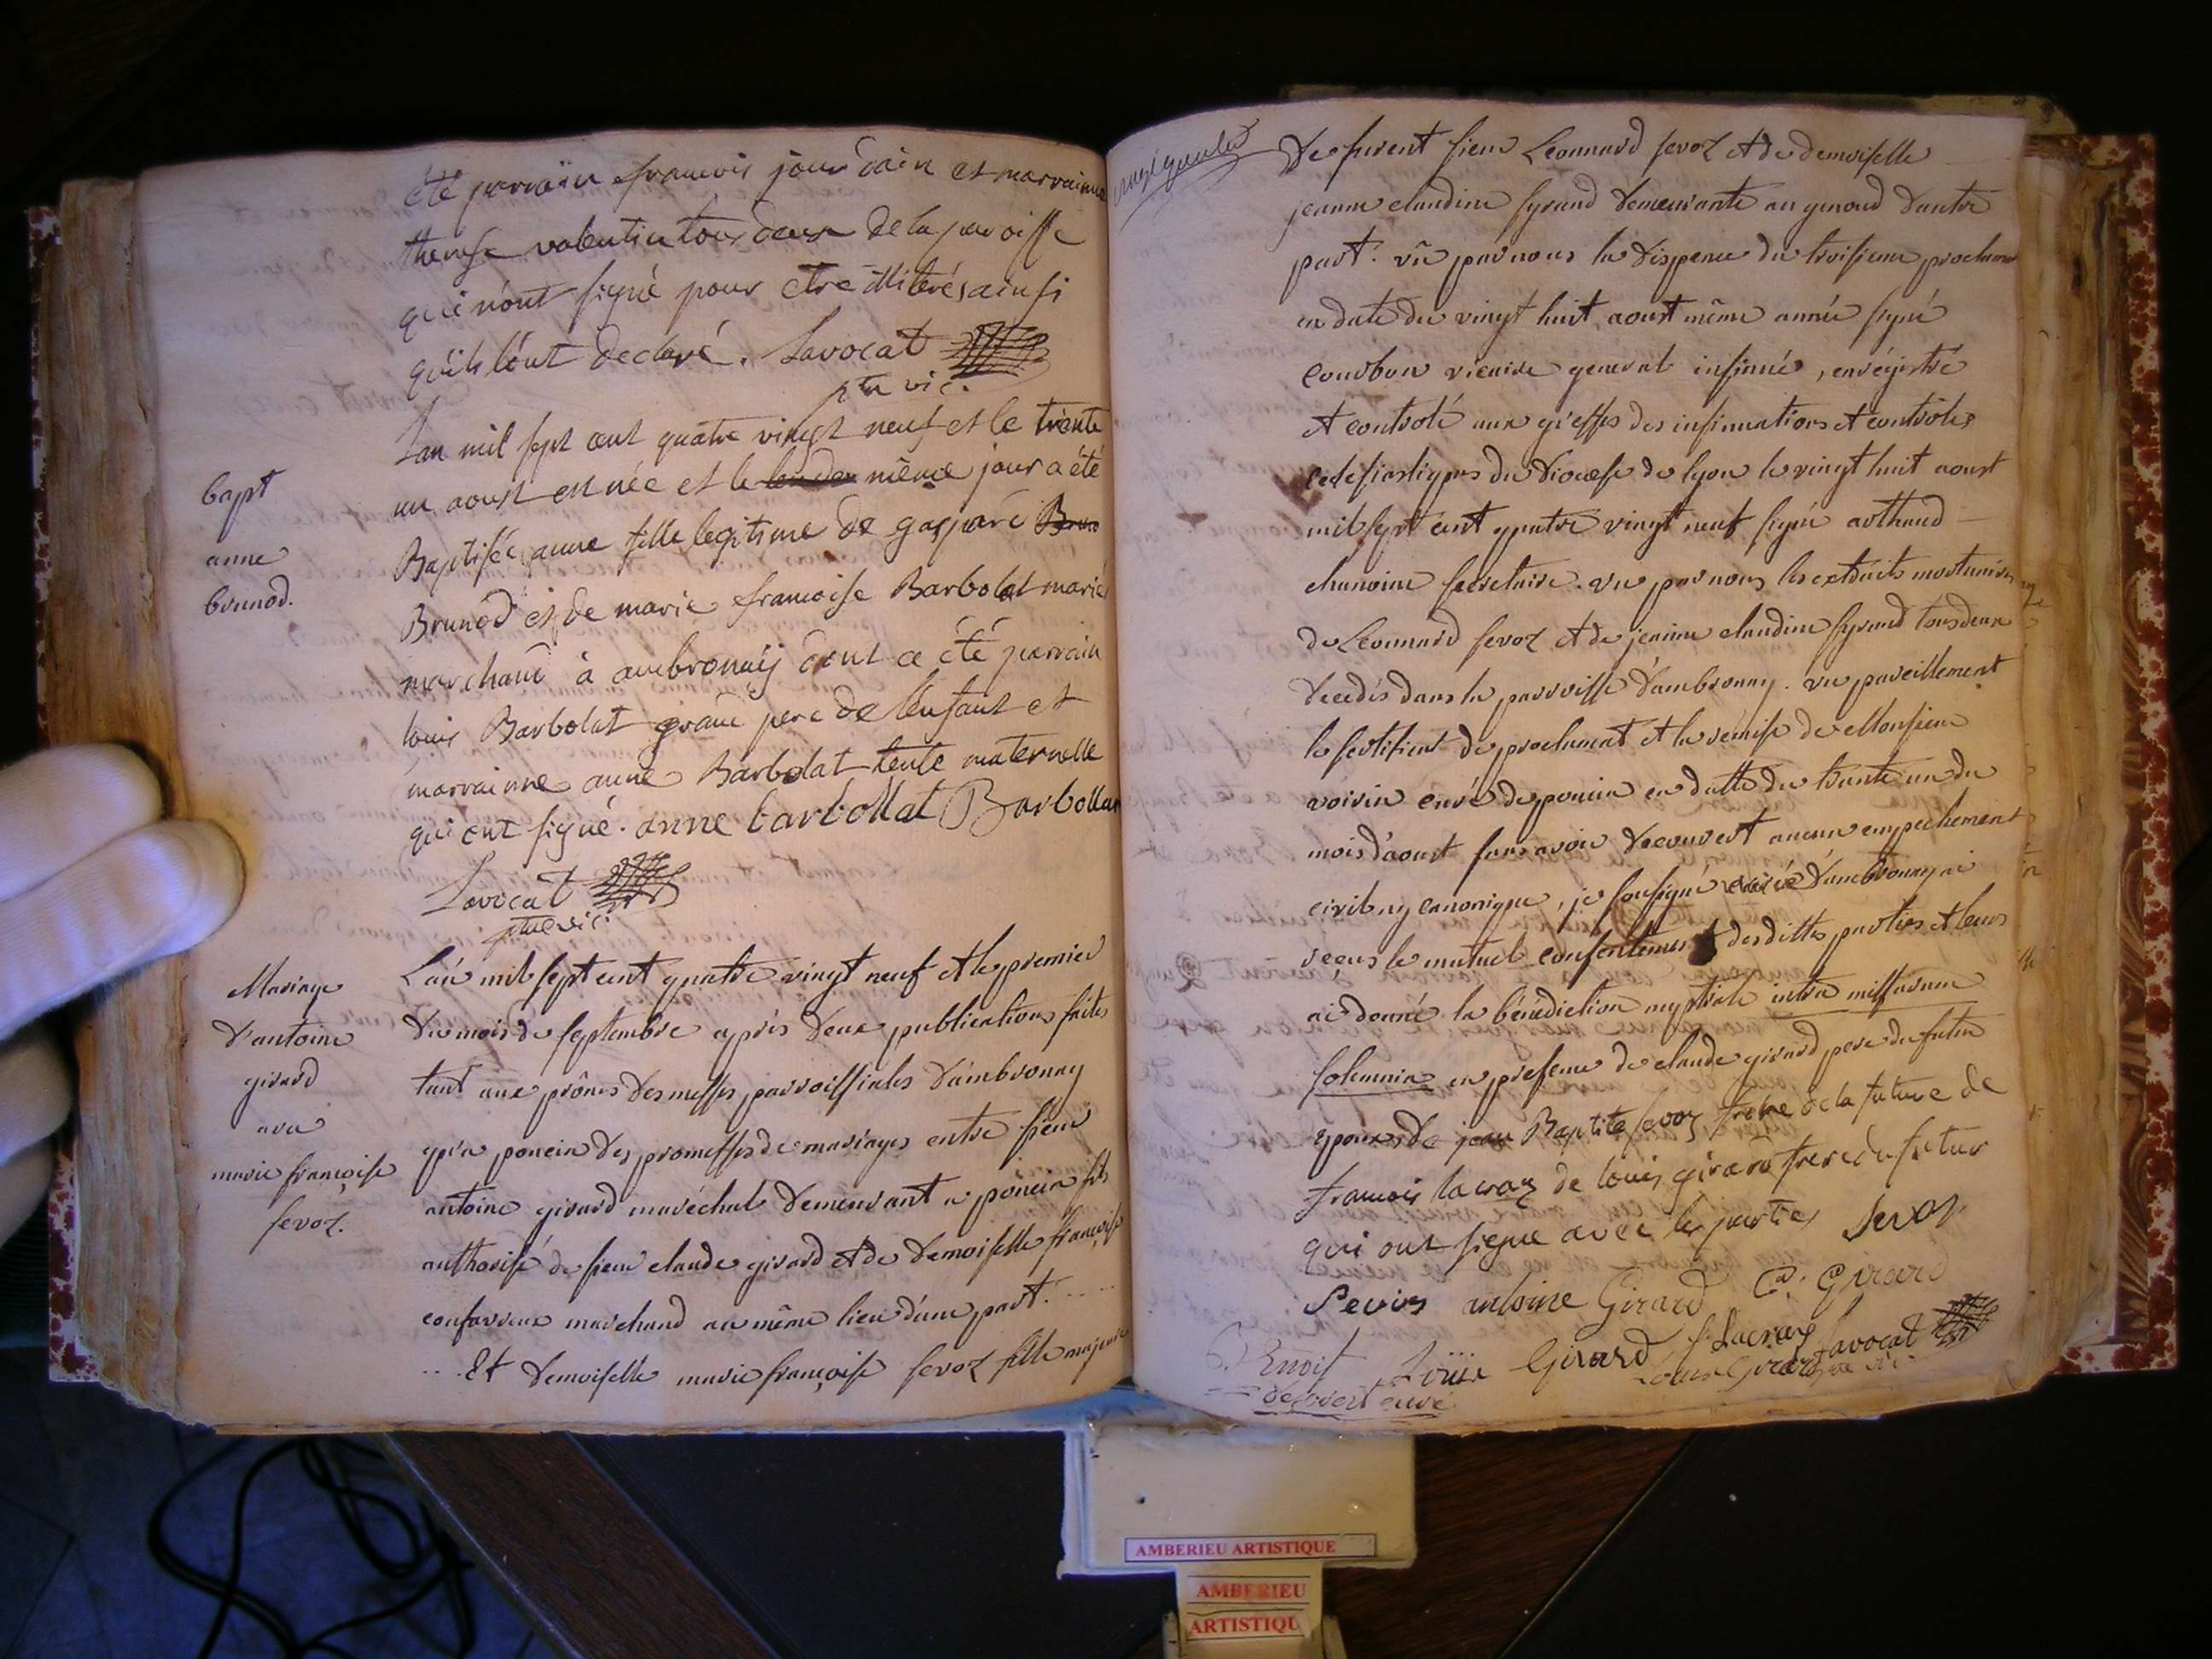 été parrain francois jourdain et marrainne
therese valentin tous deux de la paroisse
qui n'ont signé pour etre illiterés ainsi
qu'ils l'ont declaré. Lavocat
ptre vic.
bapt
anne
brunod.
Lan mil sept cent quatre vingt neuf et le trente
un aoust est née et le même jour a été
Baptisée anne fille legitime de gaspard
Brunod et de marie francoise Barbolat mariés
marchand à ambronaÿ dont a été parrain
louis Barbolat grand pere de l'enfant et
marrainne anne Barbolat tente maternelle
qui ont signé. anne barbollat Barbollat
Lavocat
ptre vic.
Mariage
d'antoine
girard
avec
marie françoise
sevoz.
L'an mil sept cent quatre vingt neuf et le premier
du mois de septembre après deux publications faites
tant aux prônes des messes parroissiales d'ambronay
qu'a poncin des promesses de mariages entre sieur
antoine girard maréchal demeurant a poncin fils
authorisé de sieur claude girard et de demoiselle françoise
marchand au même lieu d'une part.
Et demoiselle marie françoise sevoz fille majeure
de furent sieur Leonnard sevoz et de demoiselle
jeanne claudine syraud demeurante au genoud d'autre
part. vû par nous la dispense du troisieme proclamat
en date du vingt huit aoust même année signé
Courbon vicaire general insinué, enrégistré
et controlé aux greffes des insinuations et controles
ecclesiastiques du diocese de lyon le vingt huit aoust
mil sept cent quatre vingt neuf signé arthaud
chanoine secretaire. vu par nous les extraits mortuaires
de Leonnard sevoz et de jeanne claudine syraud tous deux
decedés dans la parroisse d'ambronay. vu pareillement
le sertificat de proclamat et la remise de Monsieur
voisin curé de poncin en datte du trente un du
mois d'aoust sans avoir decouvert aucun empechement
civil ny canonique, je soussigné curé d'ambronay ai
reçus le mutuel consentement desdittes parties et leurs
ai donné la bénédiction nuptiale intra missarum
solemnia en presence de claude girard pere du futur
epoux de jean Baptiste sevoz frere de la future de
francois lacroix de louis girard frere du futur
qui ont signé avec les parties Sevoz
Sevoz antoine Girard C. Girard
Louis Girard f. Lacroix Lavocat
curé
AMBERIEU ARTISTIQUE
AMBERIEU
ARTISTIQU